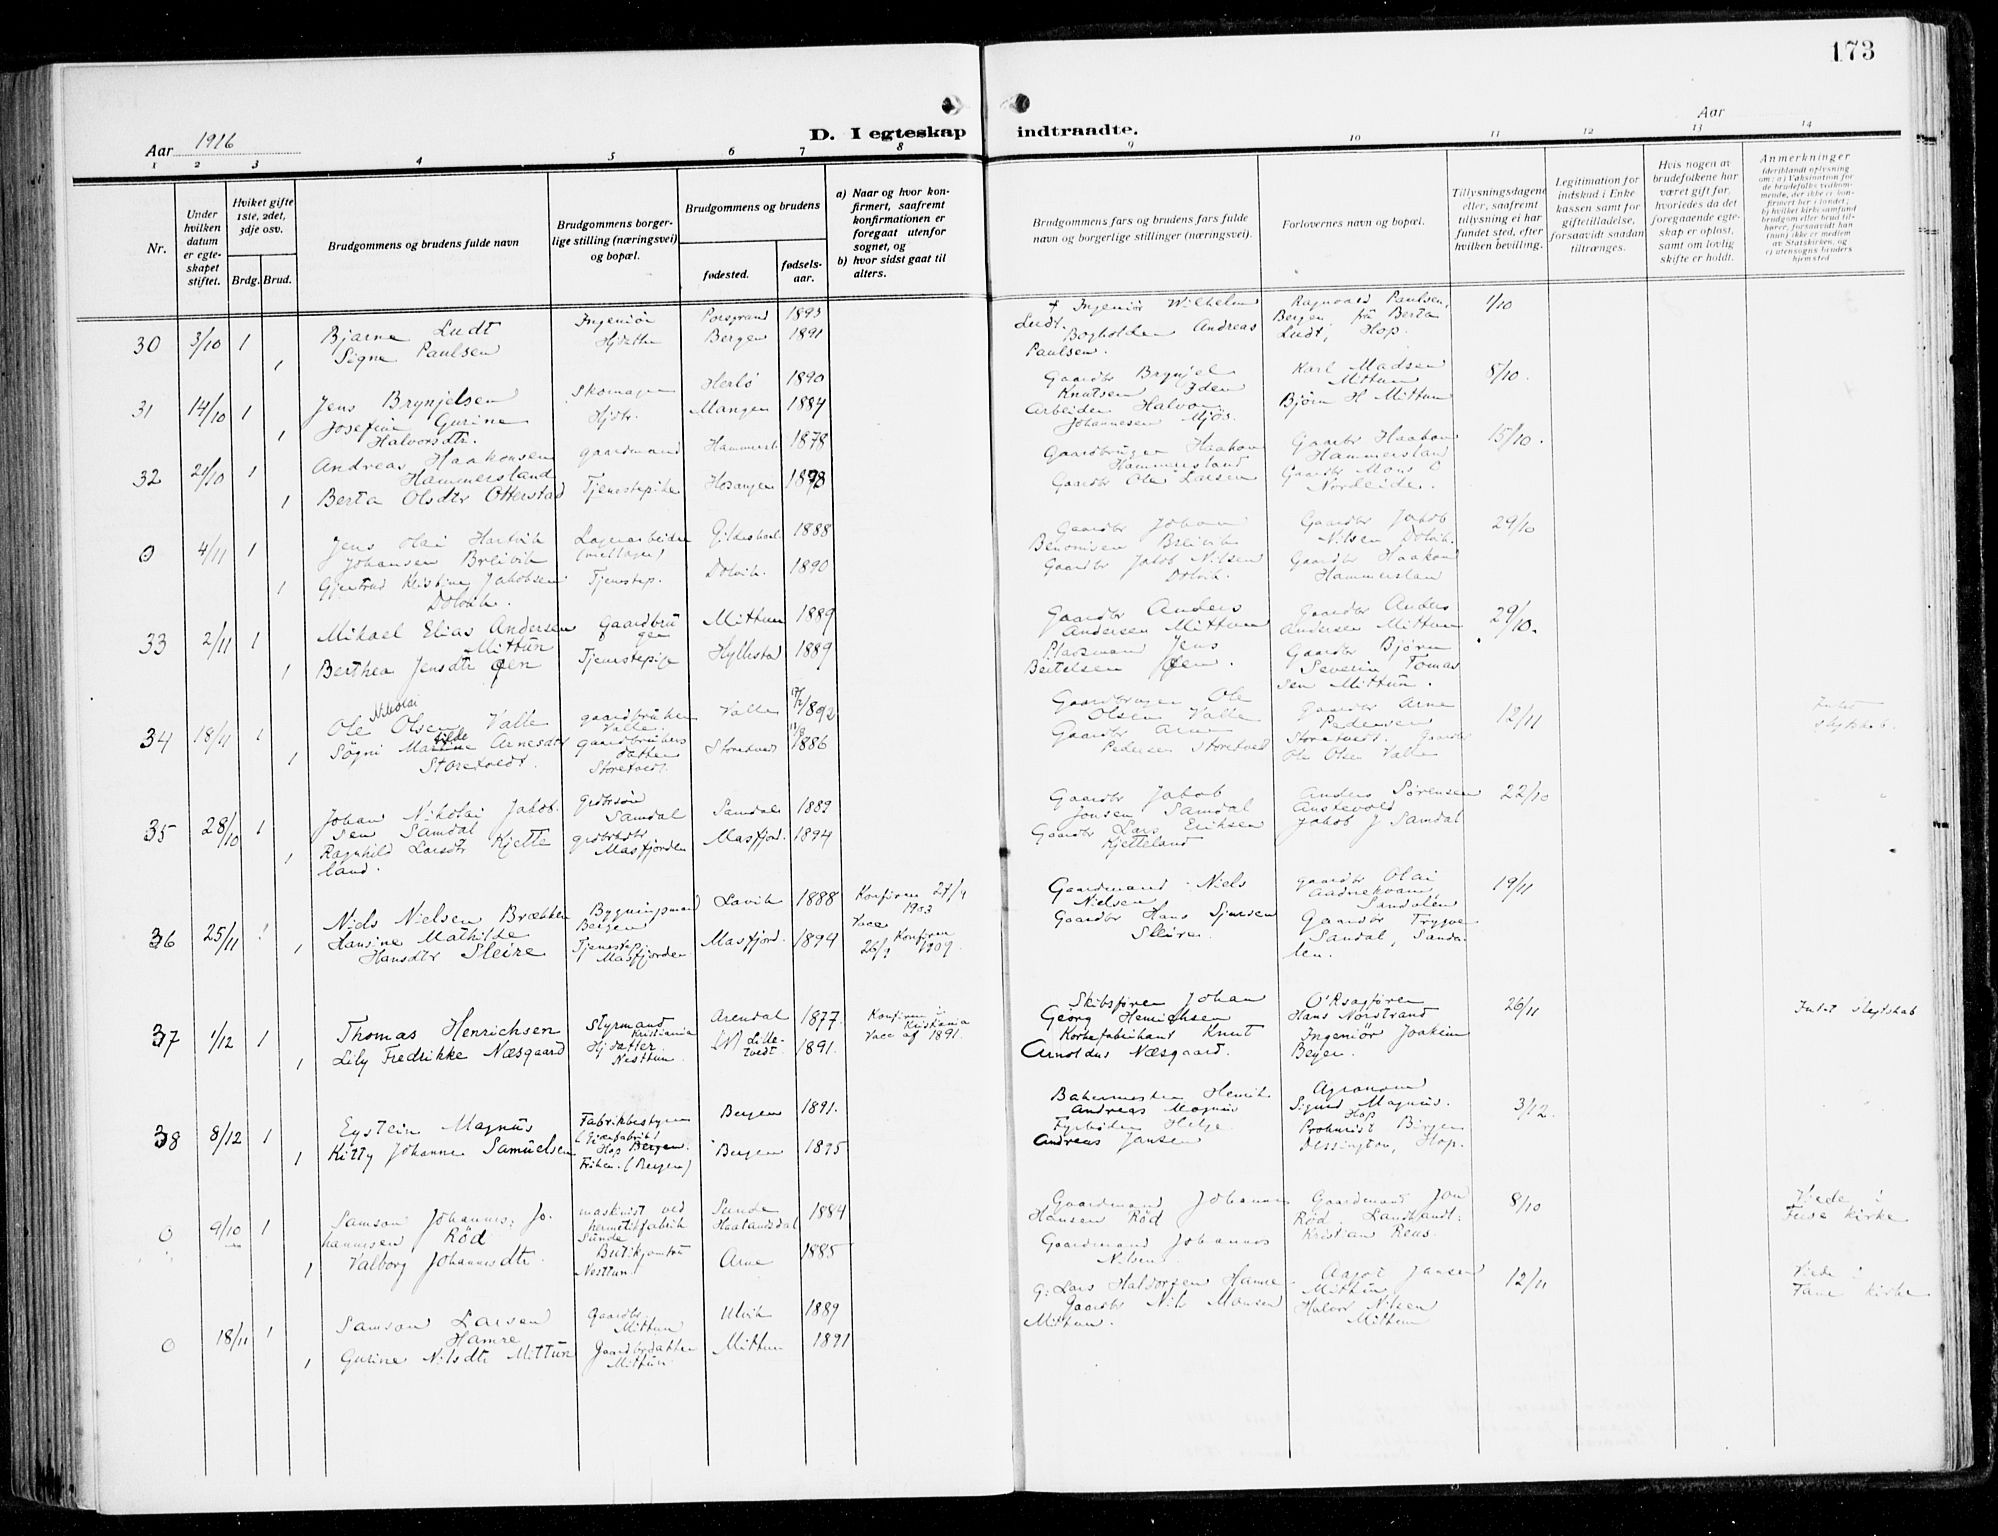 173
Aar 1916
D. I egteskap indtraadte.
Aar
1 2 3 4 5 6 7 8 9 10 11 12 13 14
Nr.
Under hvilken datum er egteskapet stiftet.
Hviket gifte 1ste, 2det, 3dje osv.
Brdg. Brud.
Brudgommens og brudens fulde navn
Brudgommens borgerlige stilling (næringsvei) og bopæl.
Brudgommens og brudens
fødested.
fødselsaar.
a) Naar og hvor konfirmert, saafremt konfirmationen er foregaat utenfor sognet, og
b) hvor sidst gaat til alters.
Brudgommens fars og brudens fars fulde navn og borgerlige stillinger (næringsvei).
Forlovernes navn og bopæl.
Tillysningsdagene eller, saafremt tillysning ei har fundet sted, efter hvilken bevilling.
Legitimation for indskud i Enkekassen samt for giftetilladelse, forsaavidt saadan tiltrænges.
Hvis nogen av brudefolkene har været gift før, hvorledes da det foregaaende egteskap er opløst, samt om lovlig skifte er holdt.
Anmerkninger (deriblandt oplysning om: a) Vaksination for de brudefolks vedkommende, der ikke er konfirmert her i landet; b) hvilket kirkesamfund brudgom eller brud tilhører, forsaavidt han (hun) ikke er medlem av Statskirken, og c) utensogns bruders hjemsted
30 3/10 1 Bjarne Ludt Ingeniör Porsgrund 1893 + Ingeniör Wilhelm Ludt. Ragnvald Paulsen, Bergen 1/10
1 Signe Paulsen Hjdatter Bergen 1891 Bogholder Andreas Paulsen. fru Berta Ludt, Hop.
31 14/10 1 Jens Brynjelsen Skomager Herlö 1890 Gaardbr Brynjel Knutsen Karl Madsen Mittun 8/10
1 Josefine Gurine Halvorsdtr. Hjdtr. Manger 1884 Arbeider Halvor Johannesen Mjös. Bjørn H Mittun
32 21/10 1 Andreas Haakonsen Hammersland gaardmand 1878 Gaardbruger Haakon Hammersland Gaardbr Haakon Hammersland 15/10.
1 Berta Olsdtr Otterstad Tjenestepike Hosanger Gaardbr Ole Larsen Gaardbr Mons O Nordeide.
0 4/11 1 Jens Olai Hartvik Johansen Brlivik Lagerarbeider 1888 Gaardbr Johan Gaardbr Jakob Nilsen Dolvik. 29/10
1 Gjertrud Kristine Jakobsen Dolvik. Tjenestep. Dolvik. 1890 Gaardbr Jakob Nilsen Dolvik. Gaardbr Haakon Hammersland
33 2/11 1 Mikael Elias Andersen Mittun Gaardbruger Mittun 1889 Gaardbr Anders Andersen Mittun Gaardbr Anders Andersen Mittun 29/10.
1 Berthea Jensdtr Øen Tjenestepige Hyllestad 1889 Pladsmand Jens Bertelsen Øen. Gaardbr Bjørn Severin Tomassen Mittun.
34 18/11 1 Ole Nikolai Olsen Valle gaardbruker Valle Valle 1892 Gaardbruger Ole Olsen Valle Gaardbr Arne Pedersen Storetvedt. 12/11
1 Søgni Arnesdtr Storetvedt. gaardbrukers datter Storetvedt. Storetvedt 1886 Gaardbr Arne Pedersen Storetvedt Gaardbr Ole Olsen Valle
Intet slegtskab.
35 28/10 1 Johan Nikolai Jakobsen Samdal grdbrsön Samdal Samdal 1889 Gaardbr Jakob Jonsen Samdal Anders Sørensen Austevold 22/10
1 Ragnhild Larsdtr Kjetteland. Masfjorden Masfjord. 1894 Gaardbr Lars Eriksen Kjetteland Jakob J Samdal
36 25/11 1 Niels Nielsen Brækken Bygningsmand Bergen Lavik 1888 Konfirm 1903 Gaardmand Niels Nielsen gaardbr Olai Aadnekvam, Sandalen 19/11
1 Hansine Mathilde Hansdtr Sleire Tjenestep. Masfjorden Masfjord. 1894 Vacc Konfirm 1909. Gaardbr Hans Sjursen Sleire. Gaardbr Trygve Sandal, Sandalen.
37 1/12 1 Thomas Henrichsen Styrmand Kristiania Arendal 1877. Konfirm i Kristiania Vacc af 1891. Skibsfören Johan Georg Henrichsen O'Rsagfören Hans Norstrand 26/11
1 Lily Fredrikke Næsgaard Hjdatter Nesttun. Lilletvedt 1891. Korkefabrikant Knut Arnoldus Næsgaard. Ingeniör Joakim Beyer.
Intet slegtskab
38 8/12 1 Eystein Magnus Fabrikbestyrer Hop Bergen. Bergen 1891. Bakermester Henrik Andreas Magnus Agronom Sigurd Magnus. Hop 3/12.
1 Kitty Johanne Samuelsen (Bergen) Bergen 1895 Fyrböder Helge Andreas Jansen Prokurist Birger Dessington, Hop.
0 9/10 1 Samson Johannes: Johannesen Rød maskinist ved hermetikfabrik Sunde Sunde Haalandsdal 1884 Gaardmand Johannes Hansen Rød Gaardmand Jon Rød. 8/10
1 Valborg Johannesdtr. Nesttun. Arne 1885 Gaardmand Johannes Nilsen Landhandl: Kristian Reus.
Viede i Fuse kirke
0 18/11 1 Samson Larsen Hamre Gaardbr Mittun Ulvik 1889 G: Lars Haldorsen Hamre Mittun 12/11
1 Gurine Nilsdtr Mittun Gaardbrdatter Mittun. Mittun 1891 Gaardbr Nils Monsen Mittun. Halvor Nilsen Mittun
Viede i Fane kirke